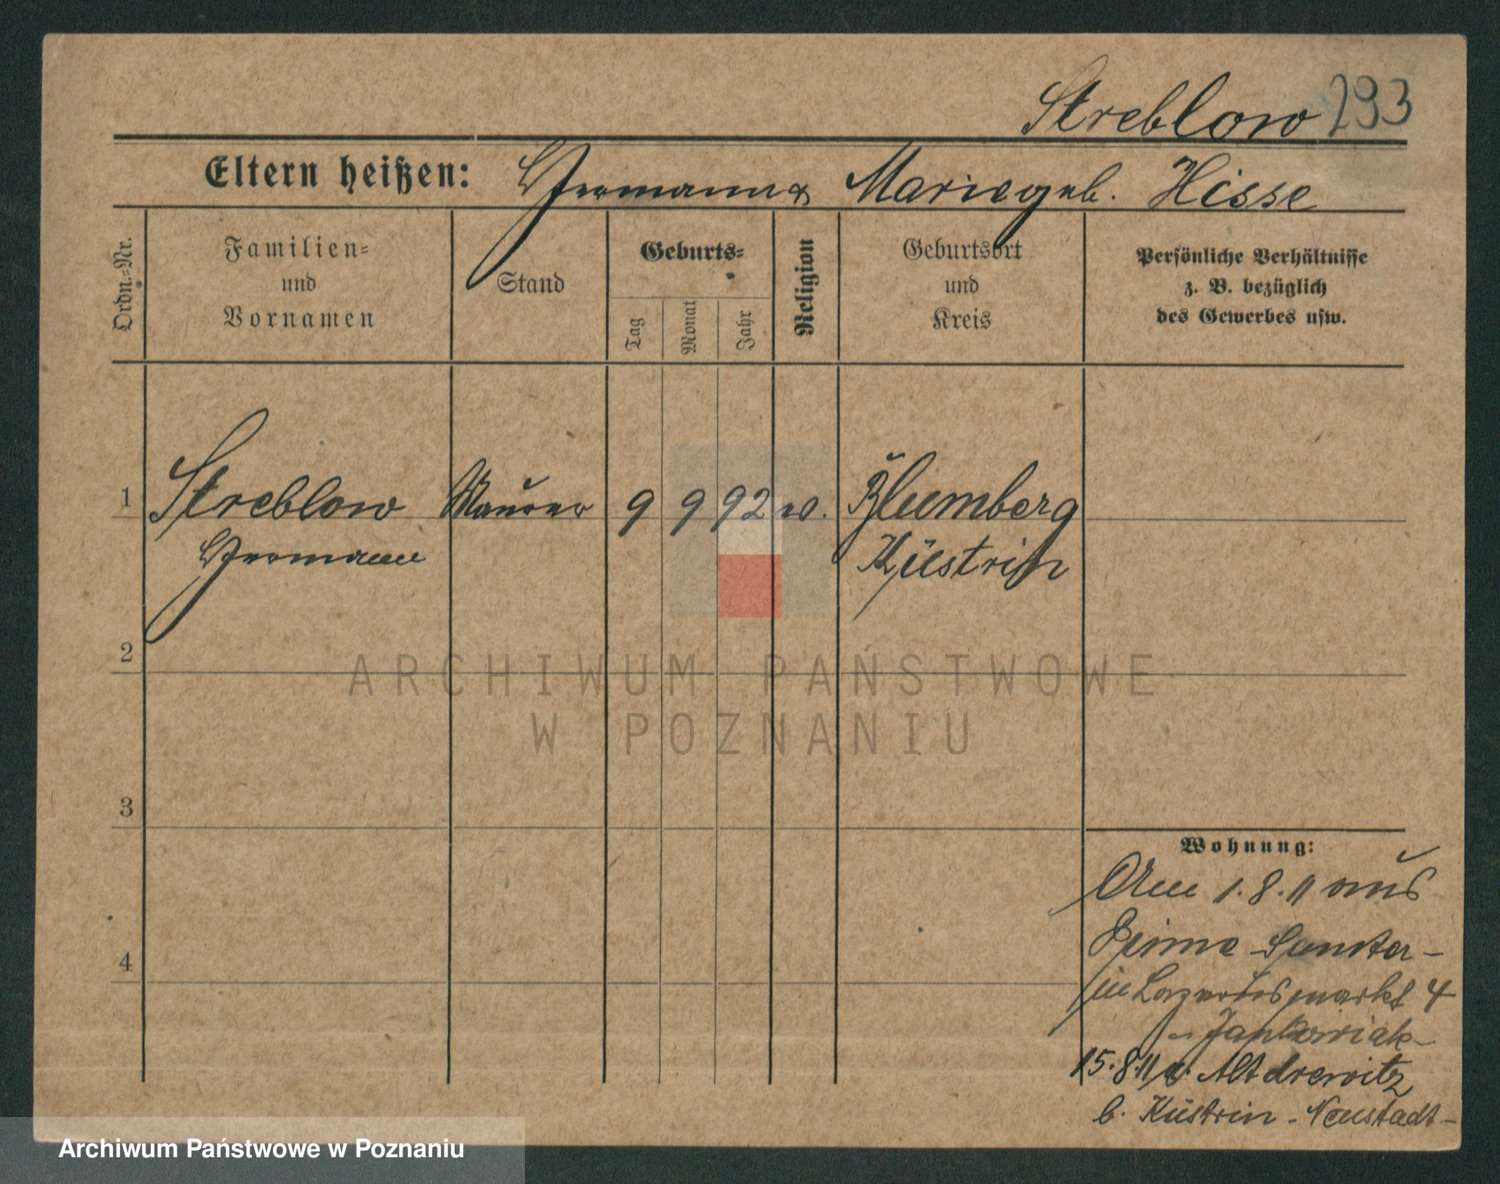 Streblow 293
Eltern heißen: Hermann & Marie geb. Hisse
Ordn.-Nr.
Familien-
und
Vornamen
Stand
Geburts-
Tag
Monat
Jahr
Religion
Geburtsort
und
Kreis
Persönliche Verhältnisse
z. B. bezüglich
des Gewerbes usw.
1 Streblow Maurer 9 9 92 ev. Blumberg
Hermann Küstrin
2
ARCHIWUM PAŃSTWOWE
W POZNANIU
3
4
Wohnung:
Am 1.8.11 aus
Pinne Samter
in Lazarusmarkt 4
Jankowiak
15.8.11 n. Alt drewitz
b. Küstrin-Neustadt
Archiwum Państwowe w Poznaniu